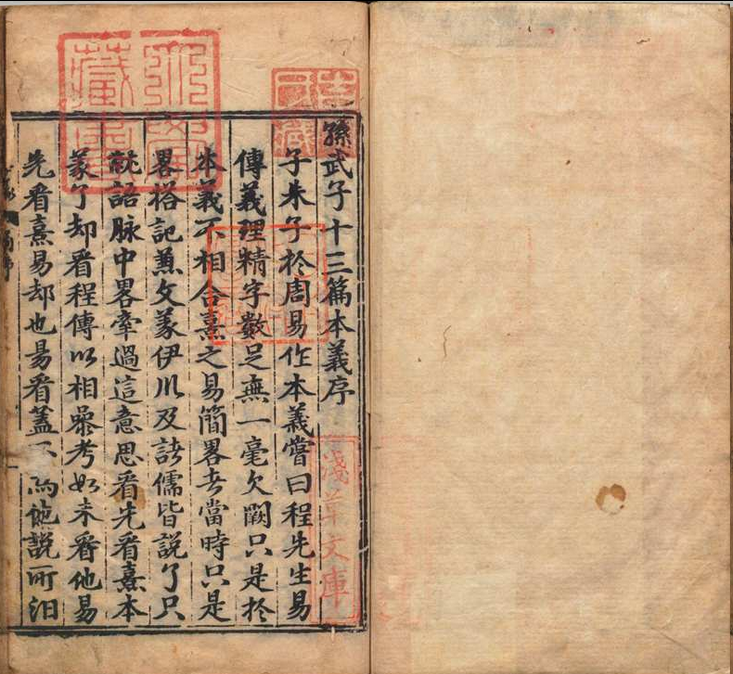 孫武子十三篇本義序
子朱子於周易作本義嘗曰程先生易
傳義理精字數足無一毫欠闕只是於
本義不相合熹之易簡畧者當時只是
畧搭記兼文義伊川及諸儒皆說了只
就語脉中畧牽過這意思看先看熹本
義了却看程傳以相參考如未看他易
先看熹易却也易看蓋不為他說所汩
淺草文庫